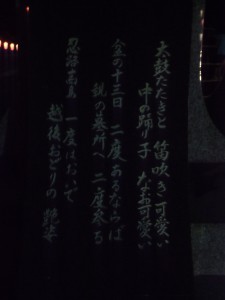 太鼓たたきと 笛吹き可愛い
中の踊り子 なお可愛い
盆の十三日 二度あるならば
親の墓所へ 二度参る
一度はおいで
越後おどりの